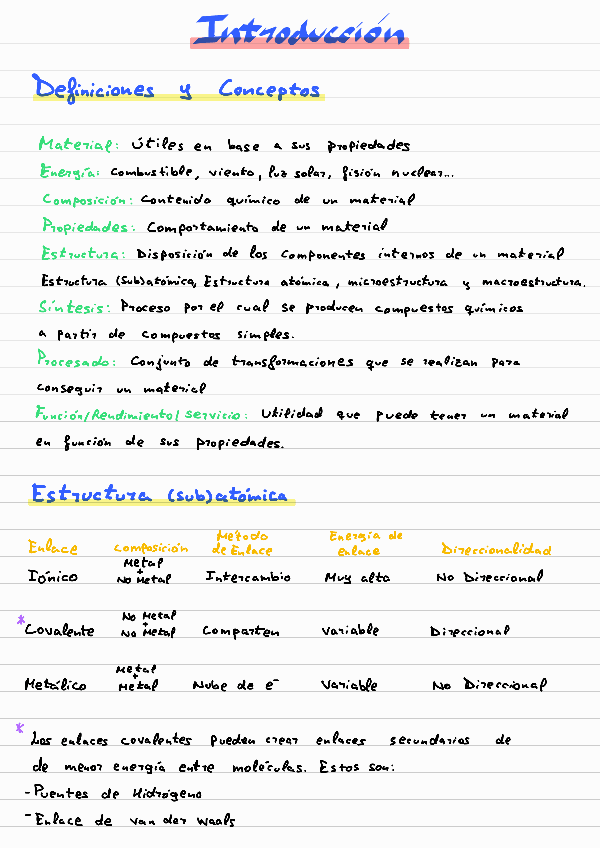 Introducción
Definiciones y Conceptos
Material: Útiles en base a sus propiedades
Energía: Combustible, viento, luz solar, fisión nuclear...
Composición: Contenido químico de un material
Propiedades: Comportamiento de un material
Estructura: Disposición de los componentes internos de un material
Estructura (sub)atómica, Estructura atómica, microestructura y macroestructura.
Síntesis: Proceso por el cual se producen compuestos químicos
a partir de compuestos simples.
Procesado: Conjunto de transformaciones que se realizan para
conseguir un material
Función/Rendimiento/servicio: Utilidad que puede tener un material
en función de sus propiedades.
Estructura (sub)atómica
Enlace Composición Método de Enlace Energía de enlace Direccionalidad
Iónico Metal + No Metal Intercambio Muy alta No Direccional
* Covalente No Metal + No Metal Comparten Variable Direccional
Metálico Metal + Metal Nube de e⁻ Variable No Direccional
* Los enlaces covalentes pueden crear enlaces secundarios de
de menor energía entre moléculas. Estos son:
- Puentes de Hidrógeno
- Enlace de van der Waals